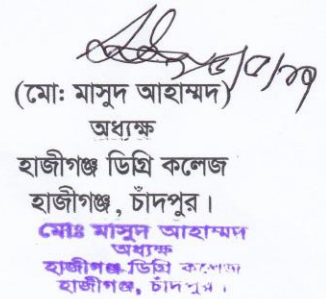 (মো: মাসুদ আহাম্মদ)
অধ্যক্ষ
হাজীগঞ্জ ডিগ্রি কলেজ
হাজীগঞ্জ, চাঁদপুর।
মোঃ মাসুদ আহাম্মদ
অধ্যক্ষ
হাজীগঞ্জ ডিগ্রি কলেজ
হাজীগঞ্জ, চাঁদপুর।